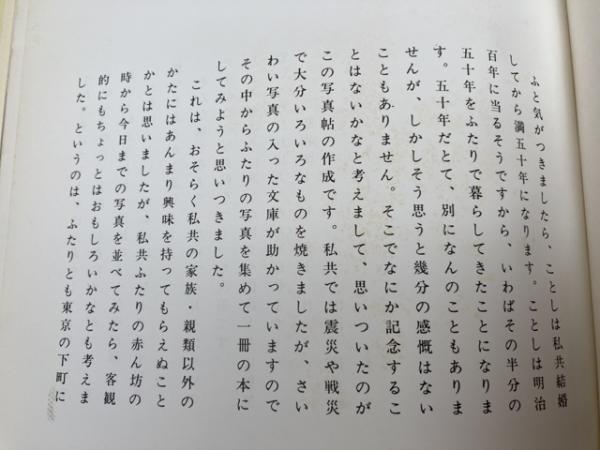 ふと気がつきましたら、ことしは私共結婚
してから満五十年になります。ことしは明治
百年に当るそうですから、いわばその半分の
五十年をふたりで暮らしてきたことになりま
す。五十年だとて、別になんのこともありま
せんが、しかしそう思うと幾分の感慨はない
こともありません。そこでなにか記念するこ
とはないかなと考えまして、思いついたのが
この写真帖の作成です。私共では震災や戦災
で大分いろいろなものを焼きましたが、さい
わい写真の入った文庫が助かっていますので
その中からふたりの写真を集めて一冊の本に
してみようと思いつきました。
これは、おそらく私共の家族・親類以外の
かたにはあんまり興味を持ってもらえぬこと
かとは思いましたが、私共ふたりの赤ん坊の
時から今日までの写真を並べてみたら、客観
的にもちょっとはおもしろいかなとも考えま
した。というのは、ふたりとも東京の下町に